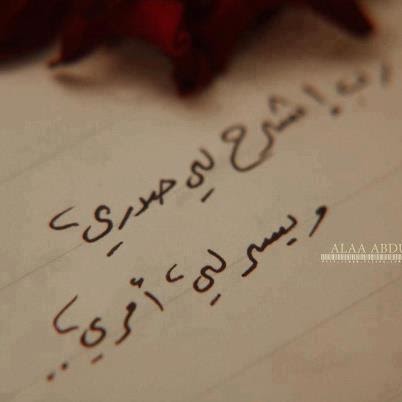 رب إشرح لي صدري،
ويسر لي، أمري،..
ALAA ABDU